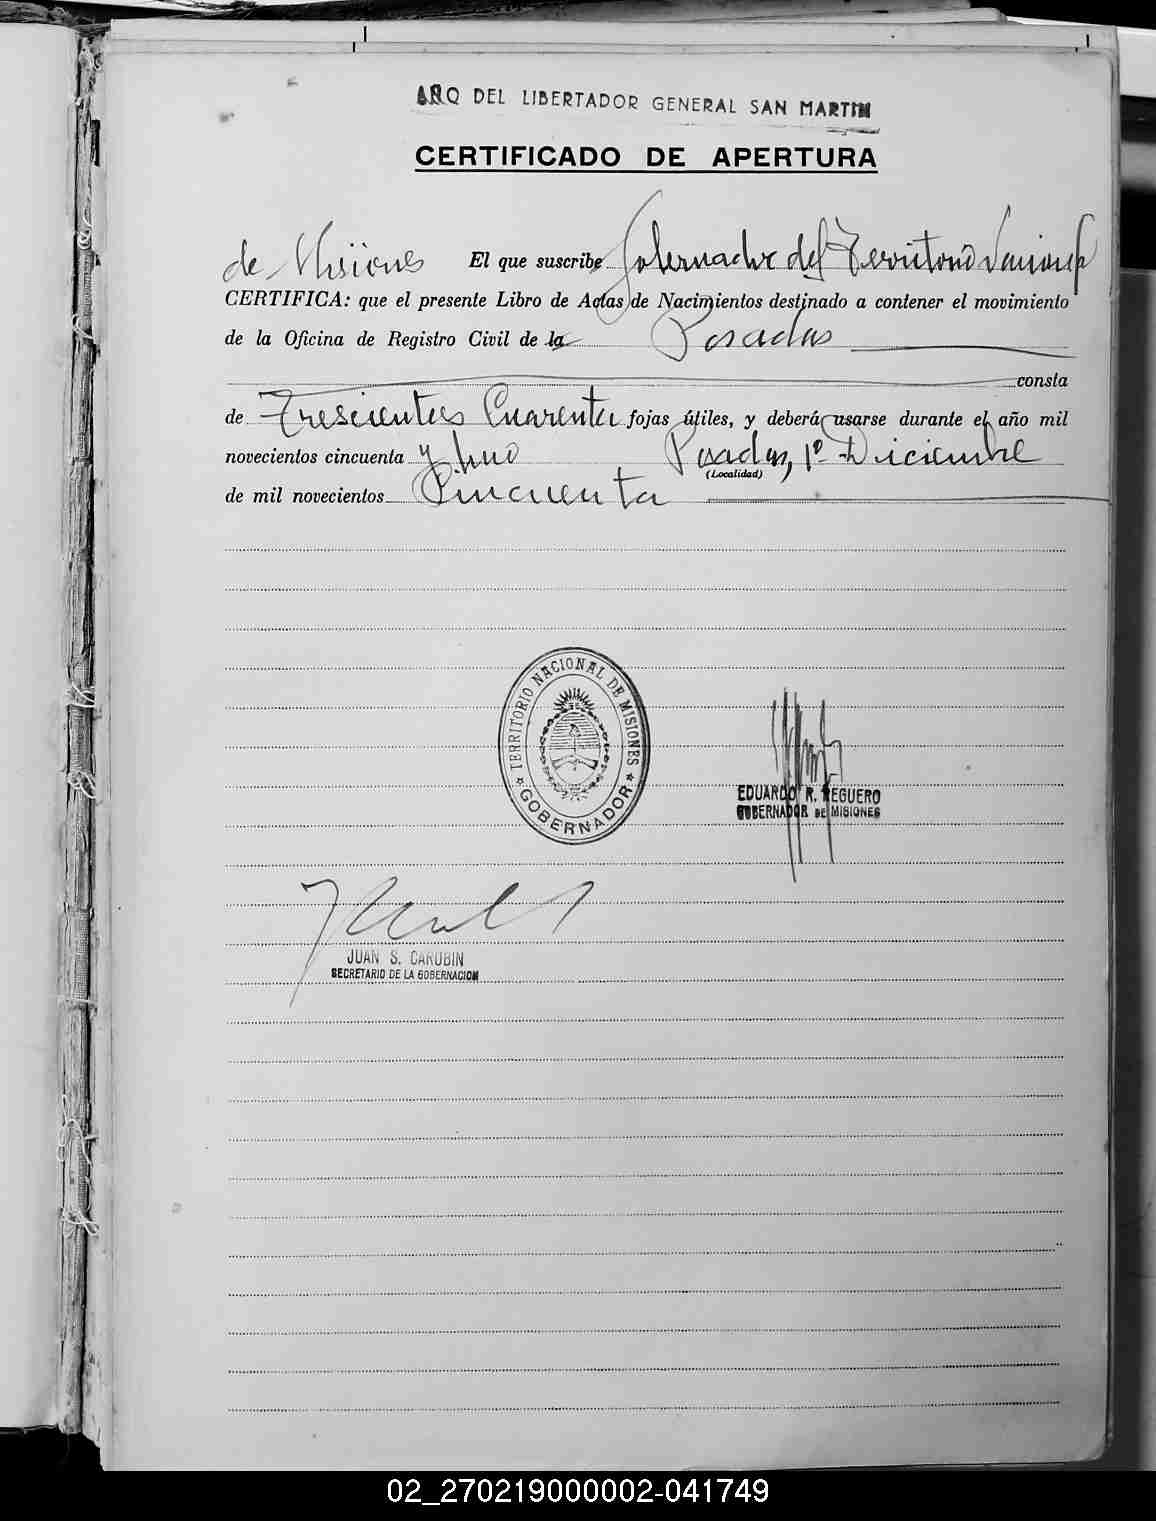 AÑO DEL LIBERTADOR GENERAL SAN MARTIN
CERTIFICADO DE APERTURA
de Misiones El que suscribe Gobernador del Territorio Nacional
CERTIFICA: que el presente Libro de Actas de Nacimientos destinado a contener el movimiento
de la Oficina de Registro Civil de la Posadas
consta
de Trescientos Cuarenta fojas útiles, y deberá usarse durante el año mil
novecientos cincuenta y uno Posadas, 1º Diciembre
(Localidad)
de mil novecientos Cincuenta
TERRITORIO NACIONAL DE MISIONES
GOBERNADOR
EDUARDO R. REGUERO
GOBERNADOR DE MISIONES
JUAN S. CARUBIN
SECRETARIO DE LA GOBERNACION
02_270219000002-041749